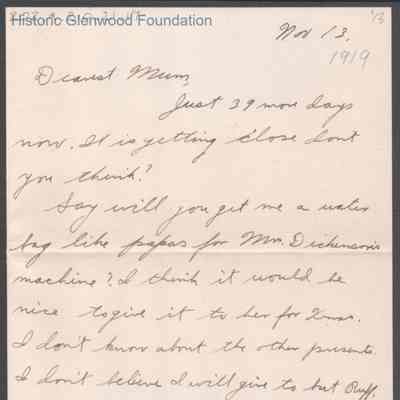 Historic Glenwood Foundation
'13
Nov 13.
1919
Dearest Mum,
Just 39 more days
now. It is getting close dont
you think?
Say will you get me a water
bag like papas for Mrs. Dickenson's
machine? I think it would be
nice to give it to her for Xmas.
I don't know about the other presents.
I don't believe I will give to but Ruff,